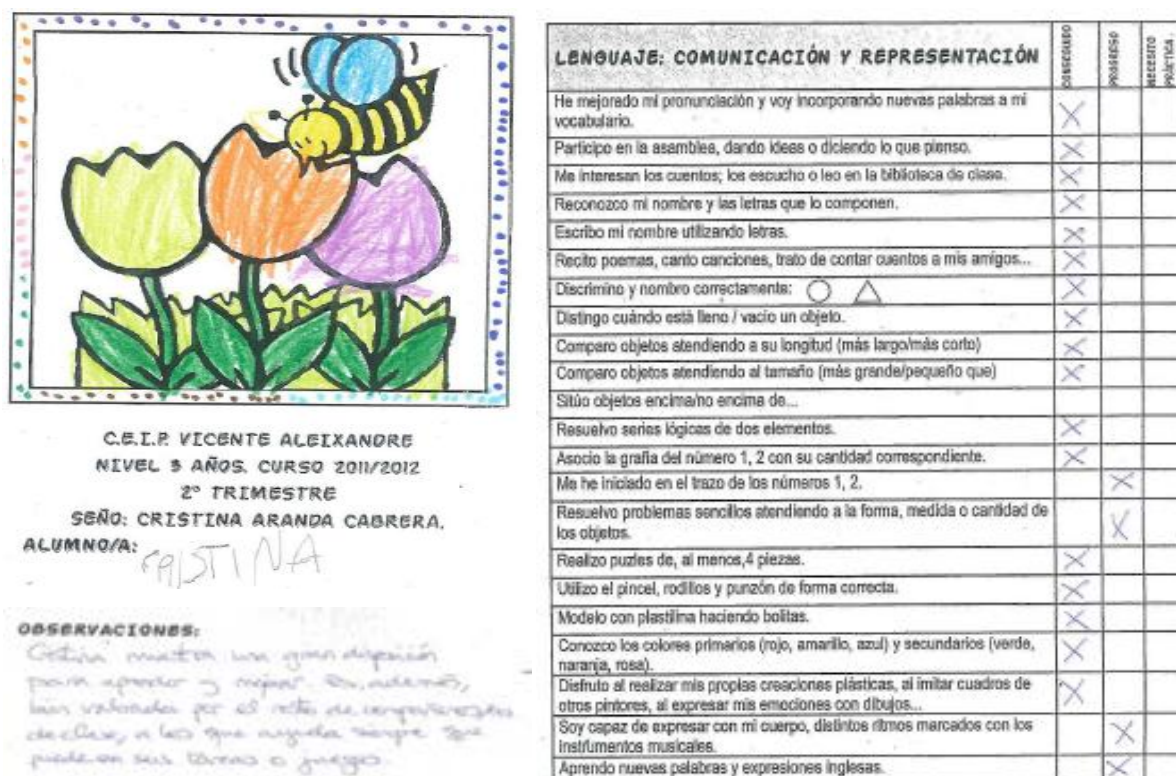 C.E.I.P. VICENTE ALEIXANDRE
NIVEL 3 AÑOS. CURSO 2011/2012
2º TRIMESTRE
SEÑO: CRISTINA ARANDA CABRERA.
ALUMNO/A:
CRISTINA
OBSERVACIONES:
muestra una gran disposición
para aprender y mejorar. Es, además,
valorada por el resto de
de clase, a los que ayuda siempre que
puede en sus tareas o juegos.
LENGUAJE: COMUNICACIÓN Y REPRESENTACIÓN
CONSEGUIDO
PROGRESO
NECESITO
PRÁCTICA
He mejorado mi pronunciación y voy incorporando nuevas palabras a mi
vocabulario.
Participo en la asamblea, dando ideas o diciendo lo que pienso.
Me interesan los cuentos; los escucho o leo en la biblioteca de clase.
Reconozco mi nombre y las letras que lo componen.
Escribo mi nombre utilizando letras.
Recito poemas, canto canciones, trato de contar cuentos a mis amigos...
Discrimino y nombro correctamente:
Distingo cuándo está lleno / vacío un objeto.
Comparo objetos atendiendo a su longitud (más largo/más corto)
Comparo objetos atendiendo al tamaño (más grande/pequeño que)
Sitúo objetos encima/no encima de...
Resuelvo series lógicas de dos elementos.
Asocio la grafía del número 1, 2 con su cantidad correspondiente.
Me he iniciado en el trazo de los números 1, 2.
Resuelvo problemas sencillos atendiendo a la forma, medida o cantidad de
los objetos.
Realizo puzles de, al menos,4 piezas.
Utilizo el pincel, rodillos y punzón de forma correcta.
Modelo con plastilina haciendo bolitas.
Conozco los colores primarios (rojo, amarillo, azul) y secundarios (verde,
naranja, rosa).
Disfruto al realizar mis propias creaciones plásticas, al imitar cuadros de
otros pintores, al expresar mis emociones con dibujos...
Soy capaz de expresar con mi cuerpo, distintos ritmos marcados con los
instrumentos musicales.
Aprendo nuevas palabras y expresiones inglesas.